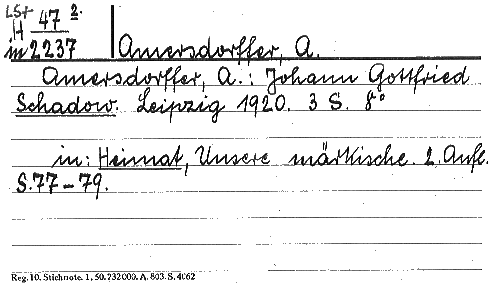 LS+
H 47 2.
in 2237
Amersdorffer, A.
Amersdorffer, A.: Johann Gottfried
Schadow. Leipzig 1920. 3 S. 8°
in: Heimat, Unsere märkische. 2. Aufl.
S. 77-79.
Reg. 10. Stichnote. 1, 50. 732 000. A. 803. S. 4062